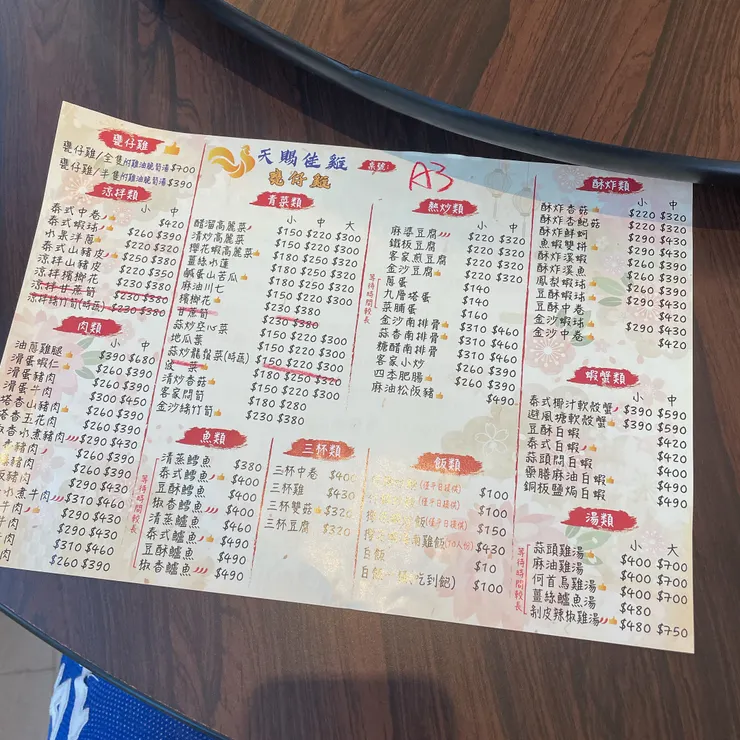 甕仔雞
甕仔雞/全隻附雞油脆筍湯 $700
甕仔雞/半隻附雞油脆筍湯 $390
天賜佳雞
甕仔雞
桌號:
A3
涼拌類
小 中
泰式中卷 $420
泰式蝦球 $260 $390
水果洋蔥 $220 $320
泰式山豬皮 $260 $380
涼拌山豬皮 $220 $350
涼拌檳榔花 $230 $380
涼拌甘蔗筍 $230 $380
涼拌綠竹筍(時蔬) $230 $380
肉類
小 中
油蔥雞腿 $390 $680
滑蛋蝦仁 $260 $390
滑蛋豬肉 $260 $390
滑蛋牛肉 $300 $450
塔香山豬肉 $260 $390
$260 $390
水煮豬肉 $290 $430
$260 $390
$260 $390
$260 $390
水煮牛肉 $310 $460
牛肉 $290 $430
$290 $430
$310 $460
$260 $390
青菜類
小 中 大
醋溜高麗菜 $150 $220 $300
清炒高麗菜 $150 $220 $300
櫻花蝦高麗菜 $180 $250 $320
薑絲水蓮 $150 $220 $300
鹹蛋山苦瓜 $180 $250 $320
麻油川七 $150 $220 $300
檳榔花 $230 $380
甘蔗筍 $230 $380
蒜炒空心菜 $150 $220 $300
地瓜葉 $150 $220 $300
蒜炒龍鬚菜(時蔬) $150 $220 $300
菜 $180 $250 $320
清炒香菇 $150 $220 $300
客家悶筍 $180 $280
金沙綠竹筍 $230 $380
熱炒類
小 中
麻婆豆腐 $220 $320
鐵板豆腐 $220 $320
客家煎豆腐 $220 $320
金沙豆腐 $220 $320
蔥蛋 $140
九層塔蛋 $140
菜脯蛋 $140
金沙南排骨 $310 $460
蒜香南排骨 $310 $460
糖醋南排骨 $310 $460
客家小炒 $260 $390
四季肥腸 $260 $390
麻油松阪豬 $490
等待時間較長
酥炸類
小 中
酥炸香菇 $220 $320
酥炸杏鮑菇 $220 $320
酥炸鮮蚵 $290 $430
魚蝦雙拼 $290 $430
酥炸溪蝦 $260 $390
酥炸溪魚 $260 $390
鳳梨蝦球 $260 $390
豆酥蝦球 $260 $390
豆酥中卷 $420
金沙蝦球 $290 $430
金沙中卷 $420
蝦蟹類
小 中
泰式椰汁軟殼蟹 $390 $590
避風塘軟殼蟹 $390 $590
豆酥白蝦 $420
泰式白蝦 $420
蒜頭悶白蝦 $420
藥膳麻油白蝦 $490
鋼板鹽焗白蝦 $490
魚類
清蒸鱈魚 $380
泰式鱈魚 $400
豆酥鱈魚 $400
椒香鱈魚 $400
清蒸鱸魚 $460
泰式鱸魚 $490
豆酥鱸魚 $490
椒香鱸魚 $490
等待時間較長
三杯類
三杯中卷 $400
三杯雞 $430
三杯雙菇 $320
三杯豆腐 $320
飯類
(僅平日提供) $100
(僅平日提供) $100
飯(僅平日提供) $150
海南雞飯(10人份) $430
白飯 $10
白飯一鍋(吃到飽) $100
湯類
小 大
蒜頭雞湯 $400 $700
麻油雞湯 $400 $700
何首烏雞湯 $400 $700
薑絲鱸魚湯 $480
剝皮辣椒雞湯 $480 $750
等待時間較長